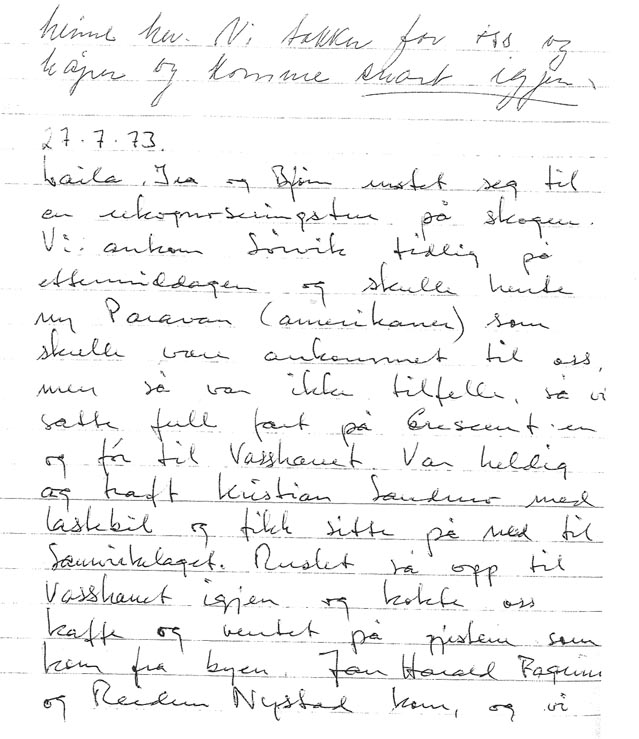 henne her. Vi takker for oss og
håper og komme snart igjen.
27.7.73.
Laila, Ira og Bjørn rustet seg til
en rekognoseringstur på skogen.
Vi ankom Sørvik tidlig på
ettermiddagen og skulle hente
ny Paravan (amerikaner) som
skulle være ankommet til oss,
men så var ikke tilfelle, så vi
satte full fart på Crescent'en
og fór til Vasshauet. Var heldig
og traff Kristian Sandmo med
lastebil og fikk sitte på ned til
Sørvikelaget. Ruslet så opp til
Vasshauet igjen og kokte oss
kaffe og ventet på som
kom fra byen. Jan Harald
og Reidun Nystad kom, og vi